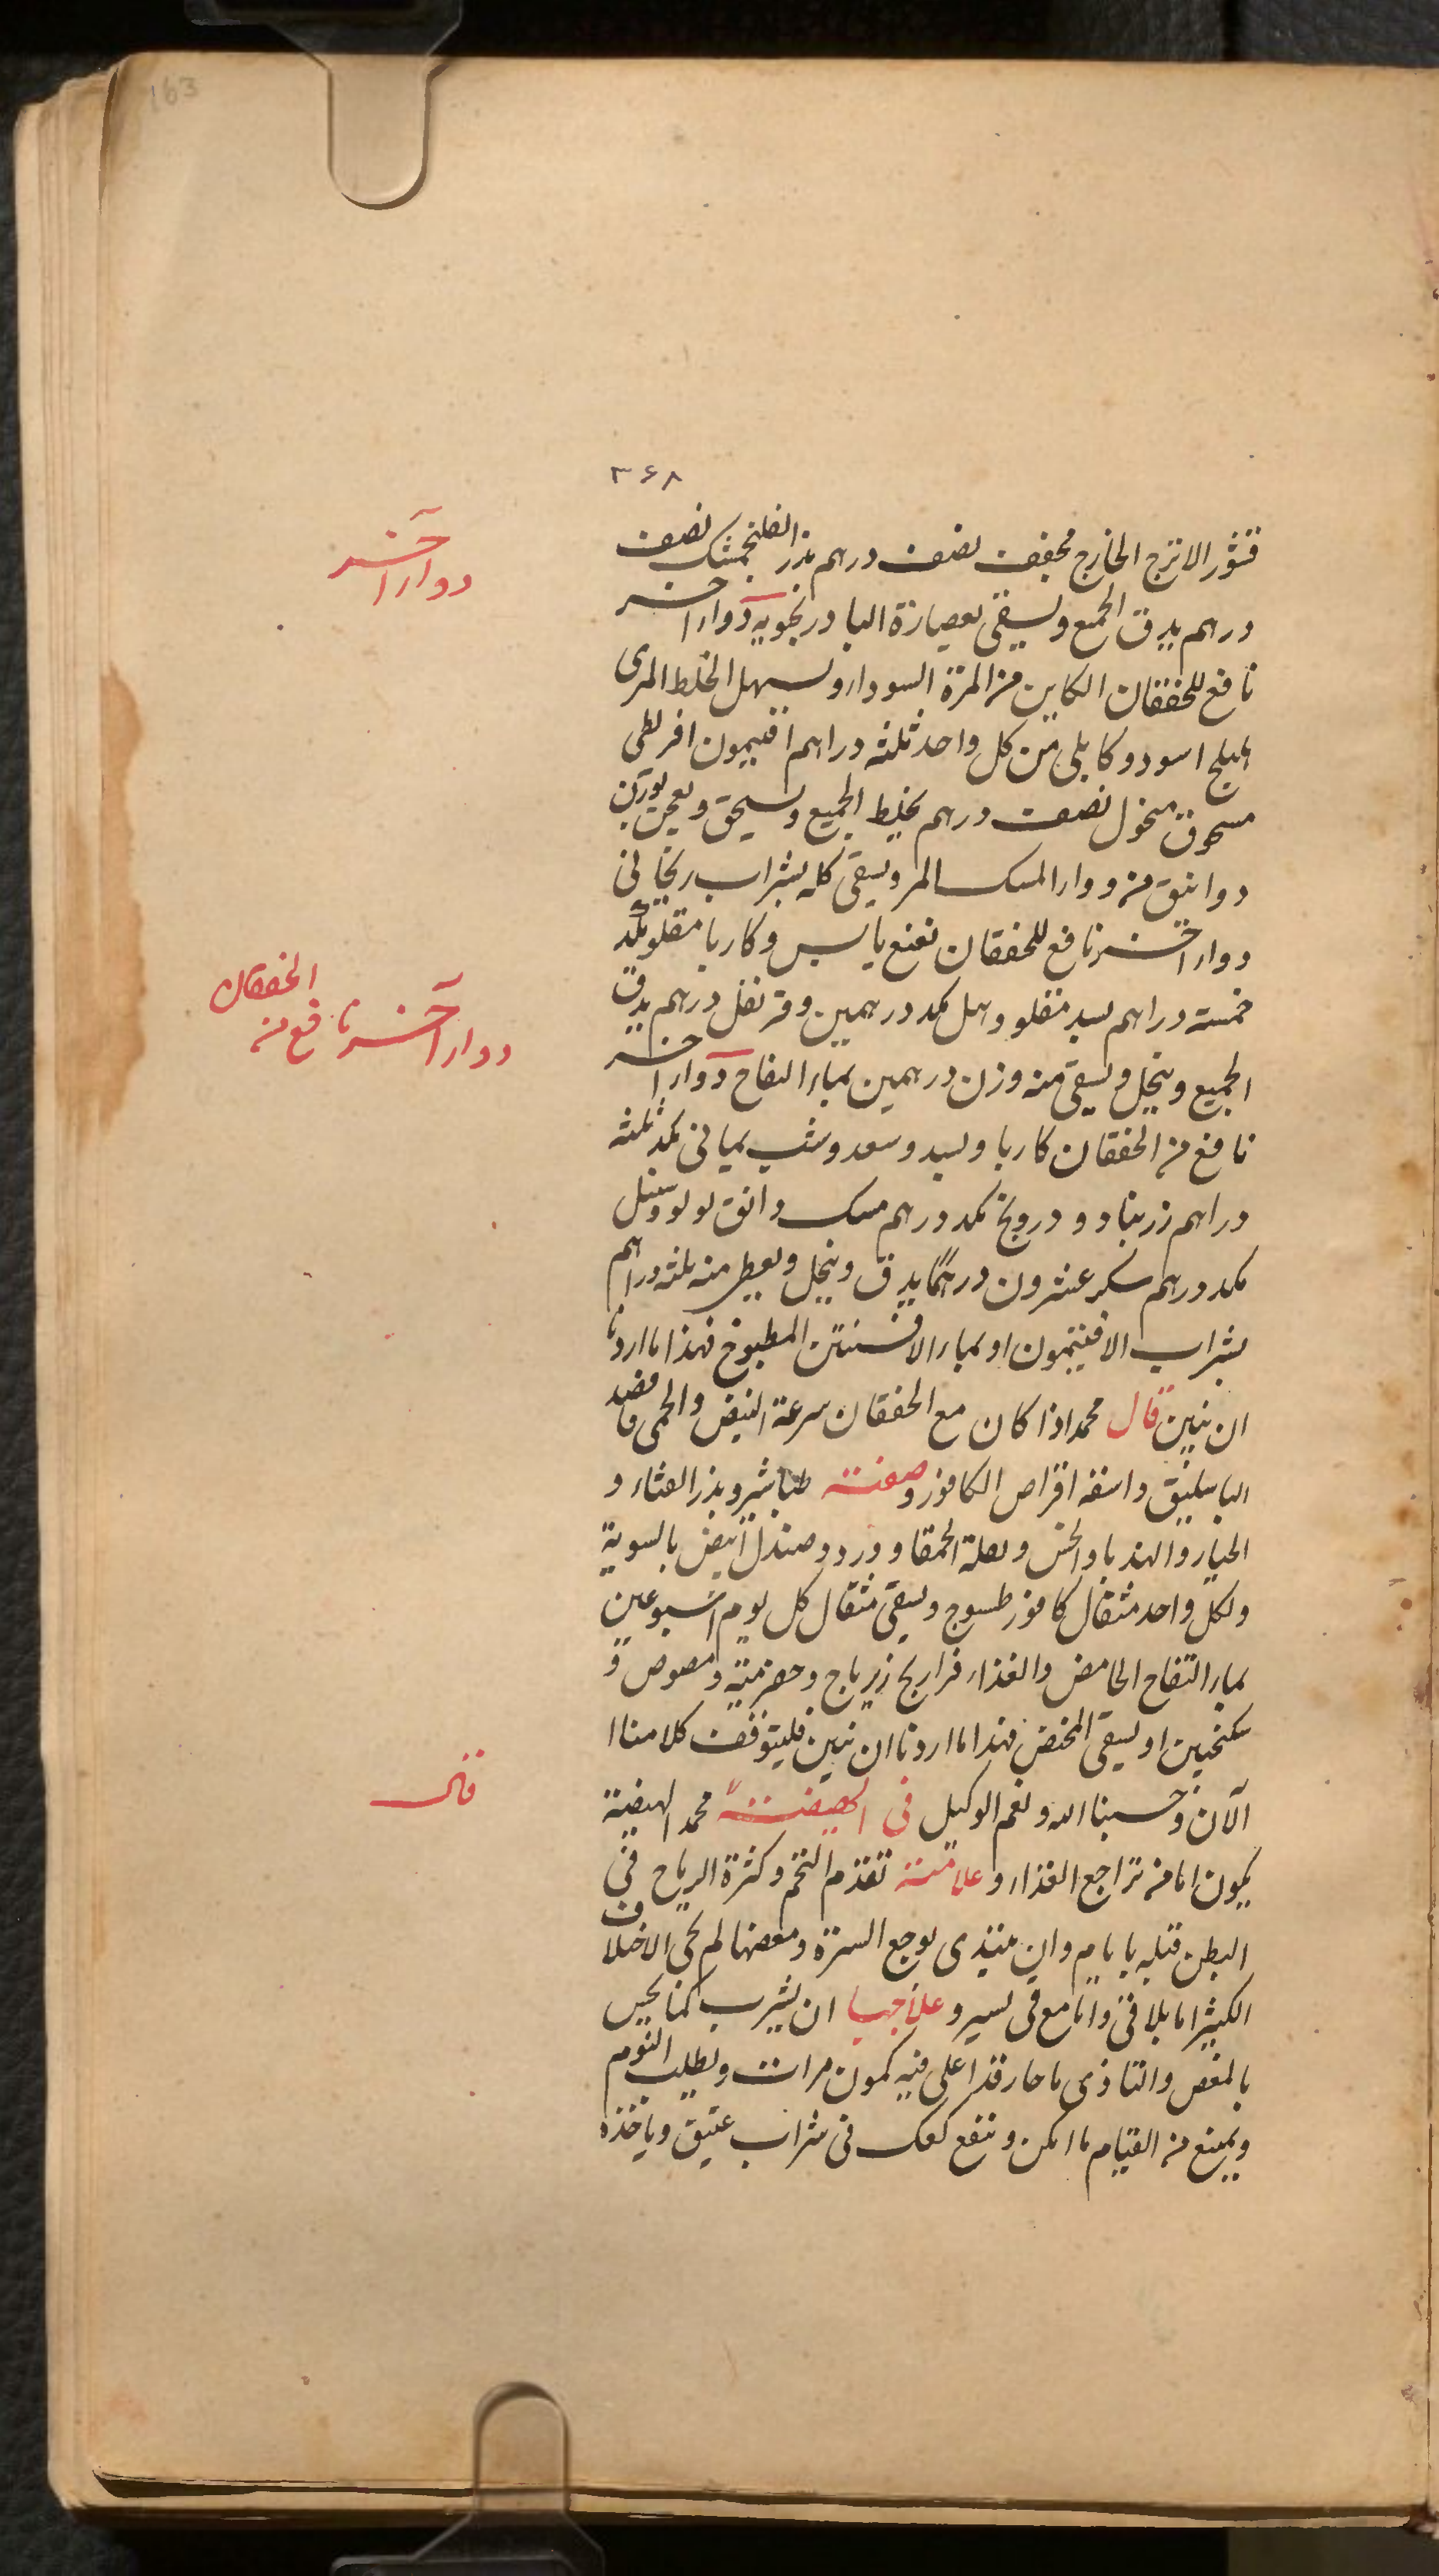 163
۳۶۸
قشور الاترج الخارج مجفف نصف درهم بذر الفلنجمشک نصف
دواء آخر
درهم یدق الجمیع ویسقی بعصارة البادرنجویه دواء آخر
نافع للخفقان الکاین من المرة السوداء ویسهل الخلط المری
هلیلج اسود وکابلی من کل واحد ثلثه دراهم افتیمون اقریطی
مسحوق منخول نصف درهم یخلط الجمیع ویسحق ویعجن بوزن
دوانیق من دواء المسک المر ویسقی کله بشراب ریحانی
دواء آخر نافع للخفقان نعنع یابس وکاربا مقلو مکد
خمسة دراهم بسد مقلو وهل مکد درهمین وقرنفل درهم یدق
دواء آخر نافع من الخفقان
الجمیع وینخل ویسقی منه وزن درهمین بماء التفاح دواء آخر
نافع من الخفقان کاربا وبسد وسعد وشب یمانی مکد ثلثه
دراهم زرنباد و درونج مکد درهم مسک دانق لولو وسنبل
مکد درهم سکر عشرون درهما یدق وینخل ویعطی منه ثلثه دراهم
بشراب الافیتمون او بماء الافسنتین المطبوخ فهذا ما اردنا
ان نبین قال محمد اذا کان مع الخفقان سرعة النبض والحمی فافصد
الباسلیق واسقه اقراص الکافور وصفته طباشیر وبذر القثاء و
الخیار والهندبا والخس وبقلة الحمقا و ورد وصندل ابیض بالسویة
ولکل واحد مثقال کافور طسوج ویسقی مثقال کل یوم اسبوعین
بماء التفاح الحامض والغذاء فراریج زیرباج وحصرمیة ومصوص و
سکنجبین او یسقی المخیض فهذا ما اردنا ان نبین فلیتوقف کلامنا ا
الآن وحسبنا الله ونعم الوکیل فی الهیضة محمد الهیضة
قال
یکون اما من تراجع الغذاء وعلامته تقدم التخم وکثرة الریاح فی
البطن قبله بایام وان یبتدی بوجع السرة ومغصها ثم یجی الاختلاف
الکثیر اما بلا قی واما مع قی یسیر وعلاجها ان یشرب کما یحس
بالمغص والتاذی ماء حار قد اغلی فیه کمون مرات ویطلب النوم
ویمنع من القیام ما امکن وینقع کعک فی شراب عتیق ویاخذه